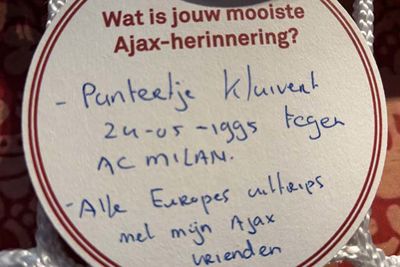 Wat is jouw mooiste
Ajax-herinnering?
- Punteetje Kluivert
24-05-1995 tegen
AC MILAN.
- Alle Europes uittrips
met mijn Ajax
vrienden